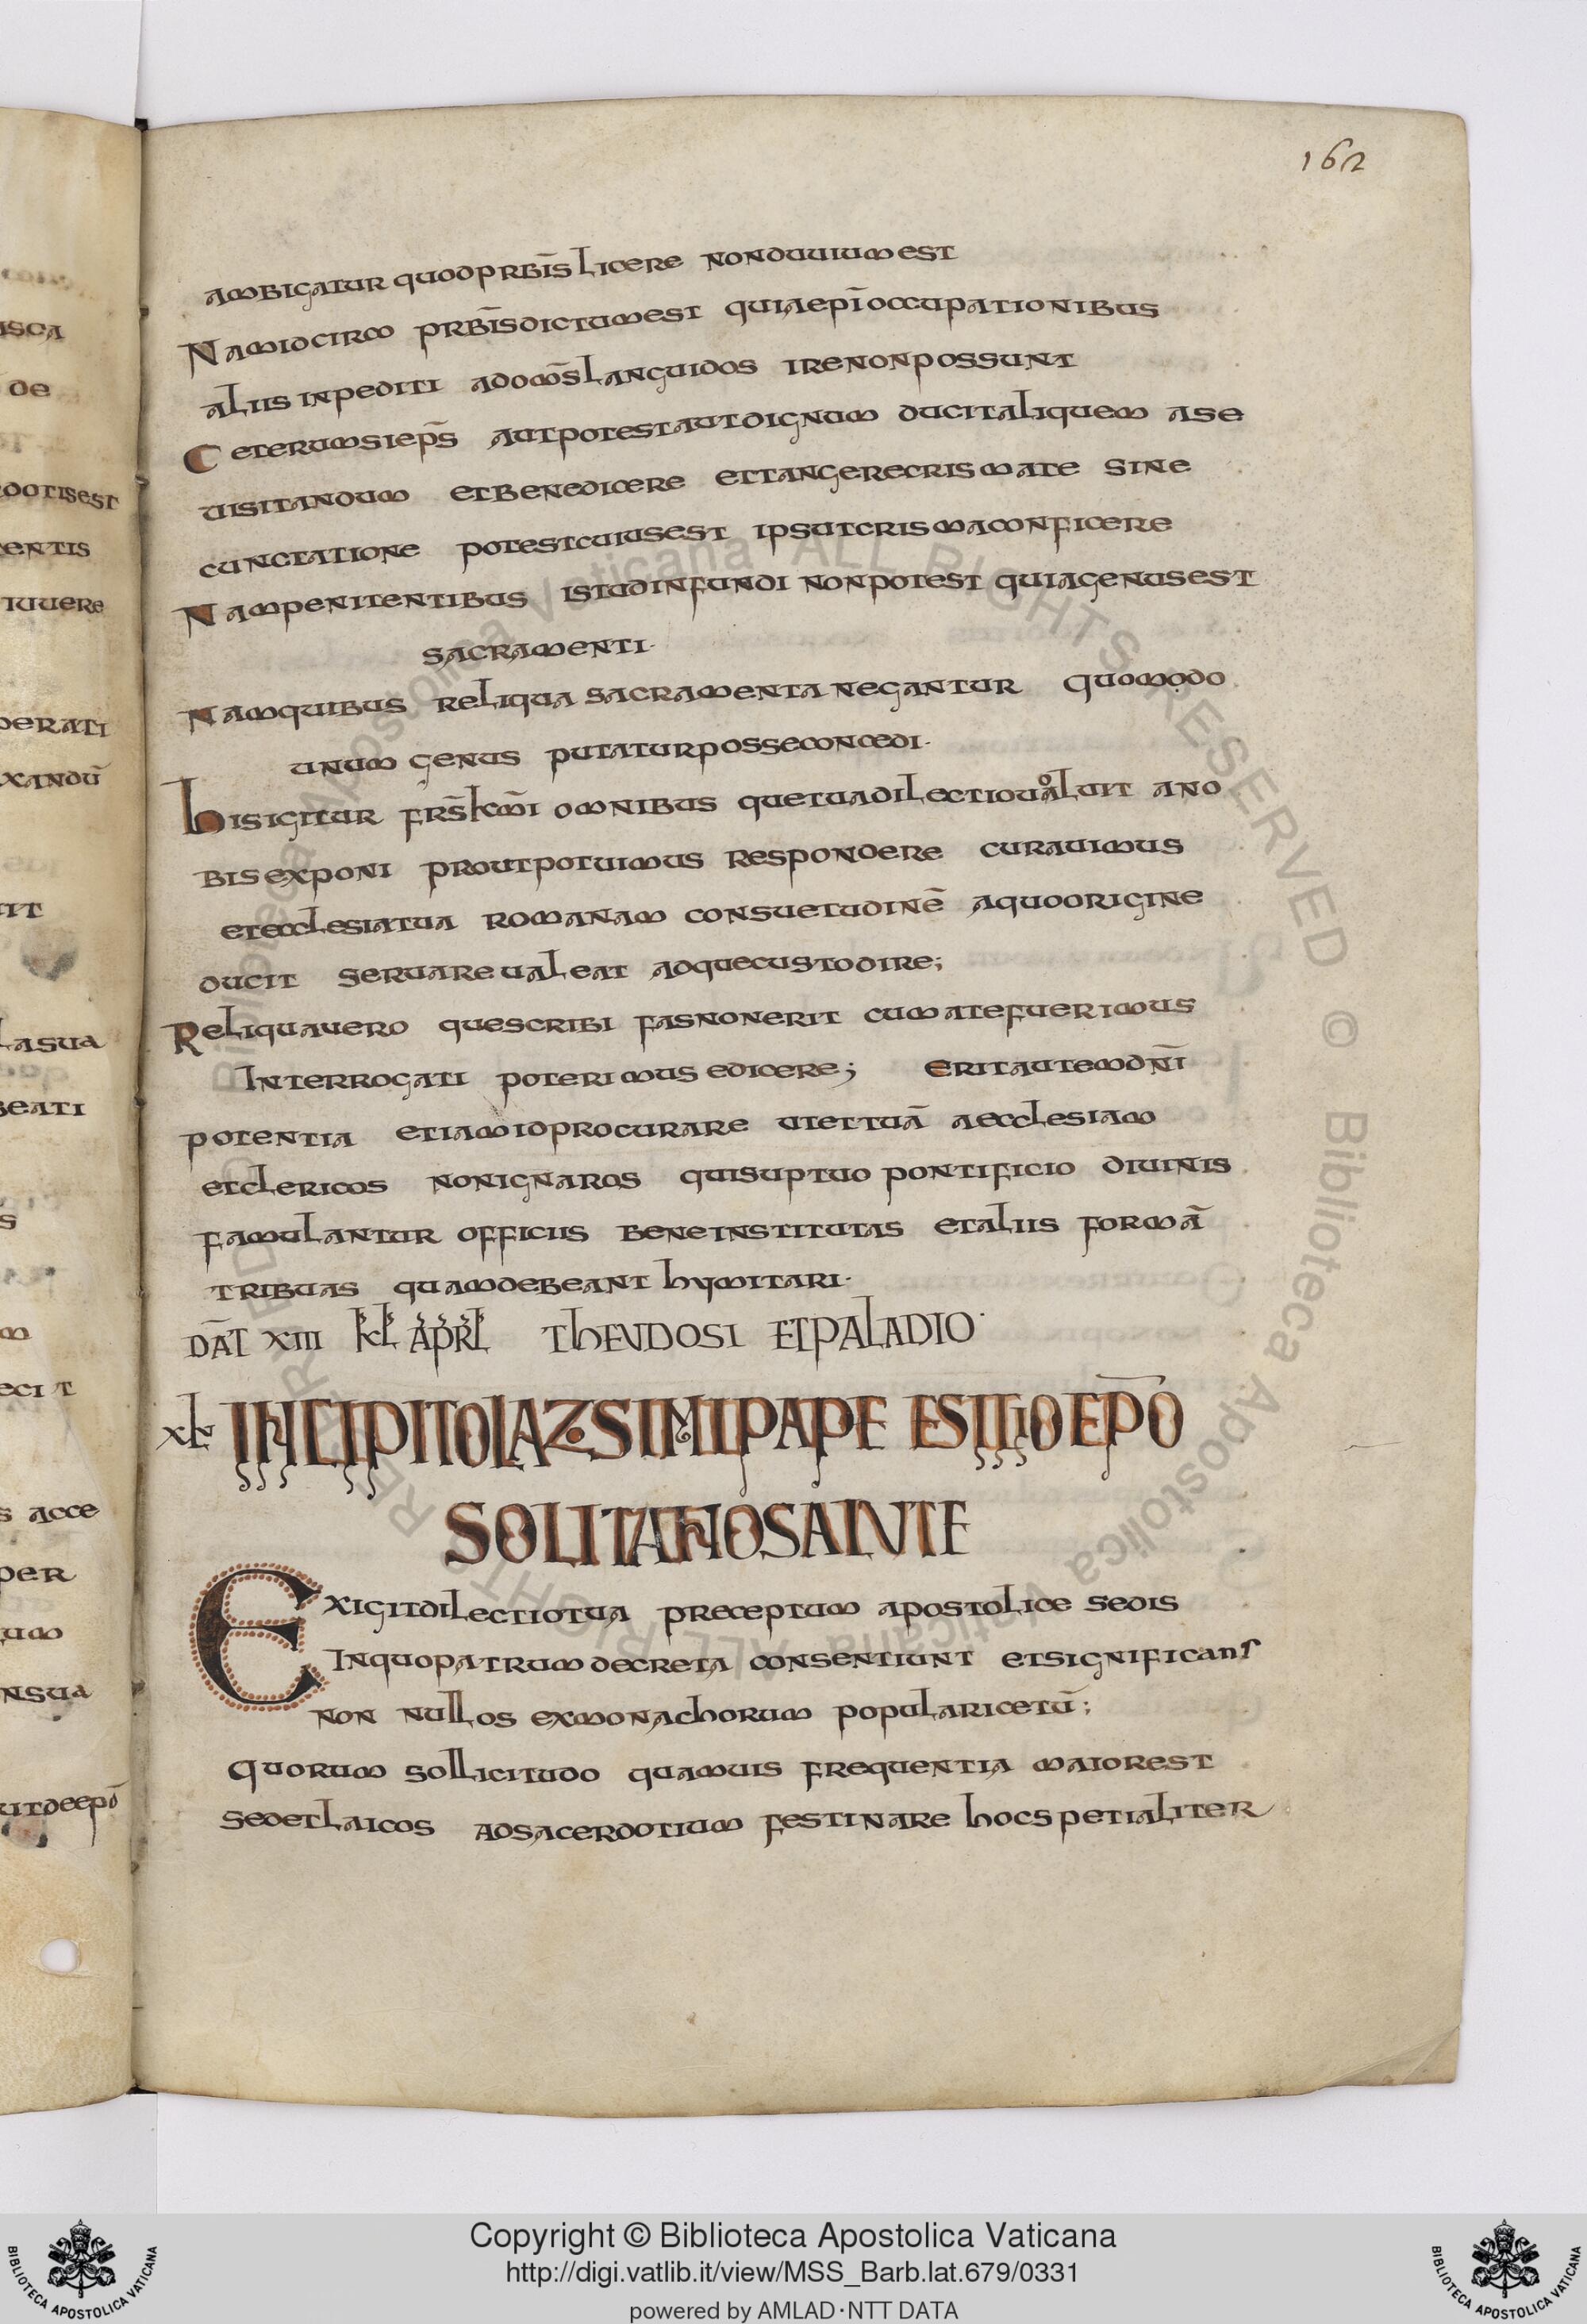 162
ambigatur quod prb̄is licere non duuium est
Nam idcirco prb̄is dictum est quia ep̄i occupationibus
aliis inpediti ad om̄s languidos ire non possunt
Ceterum si ep̄s aut potest aut dignum ducit aliquem a se
uisitandum et benedicere et tangere crismate sine
cunctatione potest cuius est ipsut crisma conficere
Nam penitentibus istud infundi non potest quia genus est
sacramenti·
Nam quibus reliqua sacramenta negantur quomodo
unum genus putatur posse concedi·
His igitur fr̄s km̄i omnibus que tua dilectio uoluit a no
bis exponi prout potuimus respondere curauimus
et ecclesia tua romanam consuetudinē a quo origine
ducit seruare ualeat adque custodire;
Reliqua uero que scribi fas non erit cum a te fuerimus
Interrogati poterimus edicere; Erit autem dn̄i
potentia etiam id procurare ut et tuā aecclesiam
et clericos non ignaros qui sup tuo pontificio diuinis
famulantur officiis bene instituas et aliis formā
tribuas quam debeant hymitari·
DAT̄ XIII kl̄ APRL̄ THEUDOSI ET PALADIO·
xl INCIPIT OLA ZOSIMI PAPE ESITIO EP̄O
SOLITANO SALUTE
Exigit dilectio tua preceptum apostolice sedis
In quo patrum decreta consentiunt et significans
non nullos ex monachorum populari cetū;
quorum sollicitudo quamuis frequentia maior est
sed et laicos ad sacerdotium festinare hoc spetialiter
usca
de
dotis est
centis
iuuere
perati
xandū
it
la sua
beati
s
m
eci t
s acce
per
um
nsua
uit de ep̄o
Biblioteca Apostolica Vaticana ALL RIGHTS RESERVED © Biblioteca Apostolica Vaticana ALL RIGHTS RESERVED ©
Copyright © Biblioteca Apostolica Vaticana
http://digi.vatlib.it/view/MSS_Barb.lat.679/0331
powered by AMLAD·NTT DATA
BIBLIOTECA APOSTOLICA VATICANA
BIBLIOTECA APOSTOLICA VATICANA